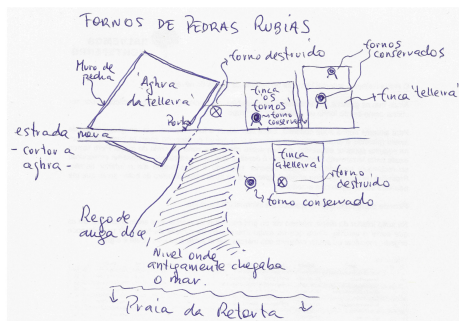 FORNOS DE PEDRAS RUBIAS
Muro de
pedra
"Aghra
da telleira"
forno destruido
fornos
conservados
finca
os
fornos
forno
conservado
finca "telleira"
Porta
estrada nova
- cortou a
aghra -
finca
atelleira
forno
destruido
forno conservado
Rego de
auga doce
Nivel onde
antigamente chegaba
o mar.
Praia da Retorta